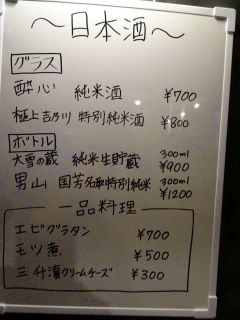 ～日本酒～
グラス
酔心 純米酒 ¥700
極上吉乃川 特別純米酒 ¥800
ボトル
大雪の蔵 純米生貯蔵 300ml ¥900
男山 国芳名取特別純米 300ml ¥1200
一品料理
エビグラタン ¥700
モツ煮 ¥500
三升漬クリームチーズ ¥300